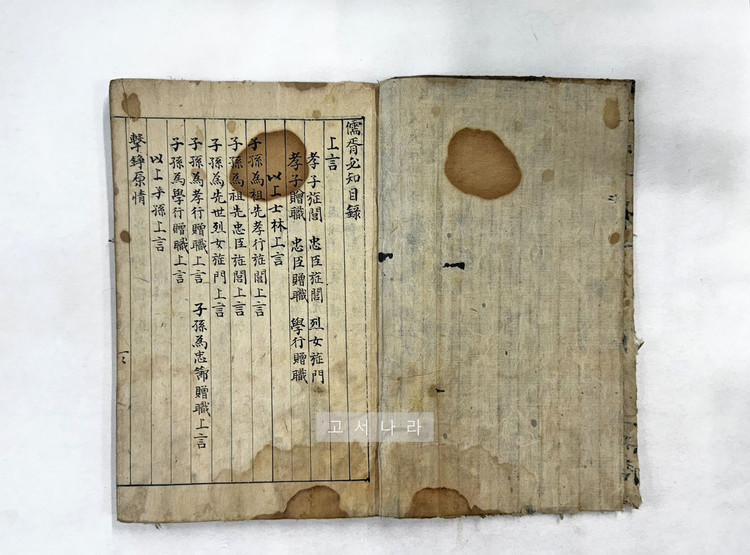 儒胥必知目錄
上言
孝子旌閭 忠臣旌閭 烈女旌門
孝子贈職 忠臣贈職 學行贈職
以上士林上言
子孫為祖先孝行旌閭上言
子孫為祖先忠臣旌閭上言
子孫為先世烈女旌門上言
子孫為孝行贈職上言 子孫為忠節贈職上言
子孫為學行贈職上言
以上子孫上言
擊錚原情
고서나라